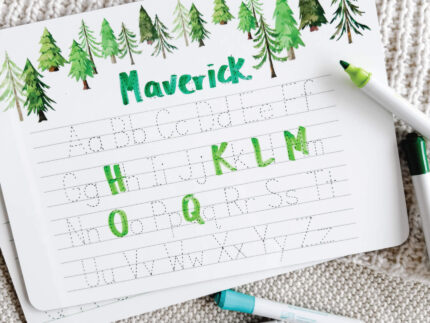 Maverick.
Aa Bb Cc Dd Ee Ff
Gg Hh Ii Jj Kk Ll Mm
Nn Oo Pp Qq Rr Ss Tt
Uu Vv Ww Xx Yy Zz